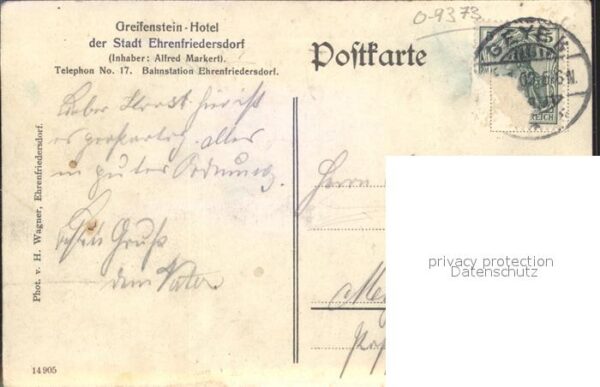 Greifenstein-Hotel
der Stadt Ehrenfriedersdorf
(Inhaber: Alfred Markert).
Telephon No. 17. Bahnstation Ehrenfriedersdorf.
Postkarte
0-9373
GEYER
REICH
Lieber Horst hier ist
es großartig alles
in guter Ordnung.
Besten Gruß
dein Vater
Herrn
Phot. v. H. Wagner, Ehrenfriedersdorf.
14905
privacy protection
Datenschutz